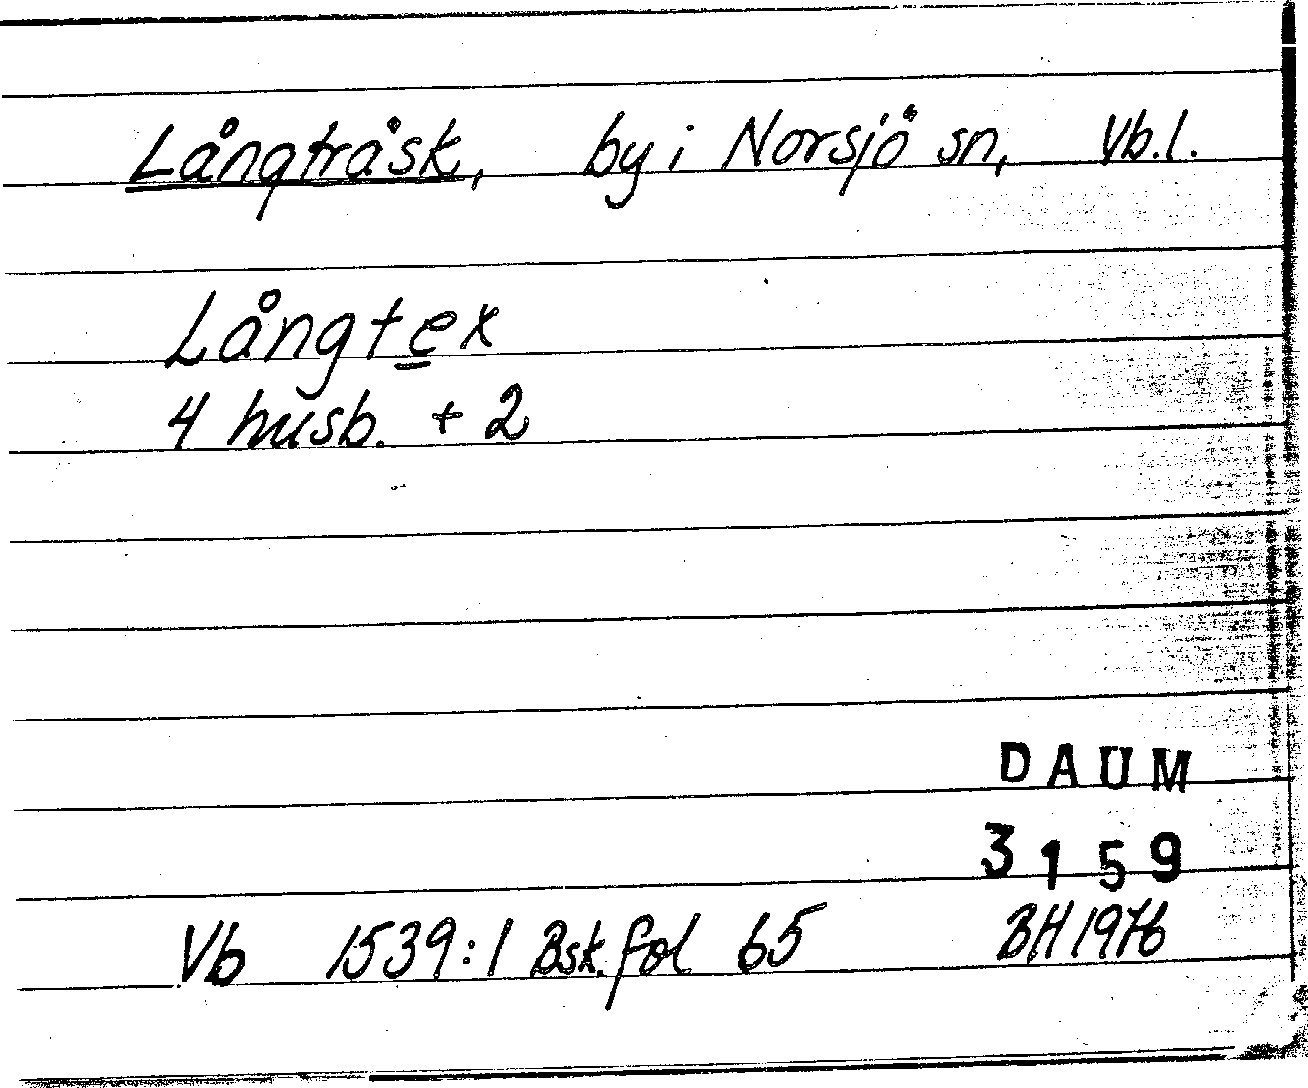 Långträsk, by i Norsjö sn, Vb.l.
Långtex
4 husb. + 2
DAUM
3159
Vb 1539:1 Bsk.fol 65 BH 1976